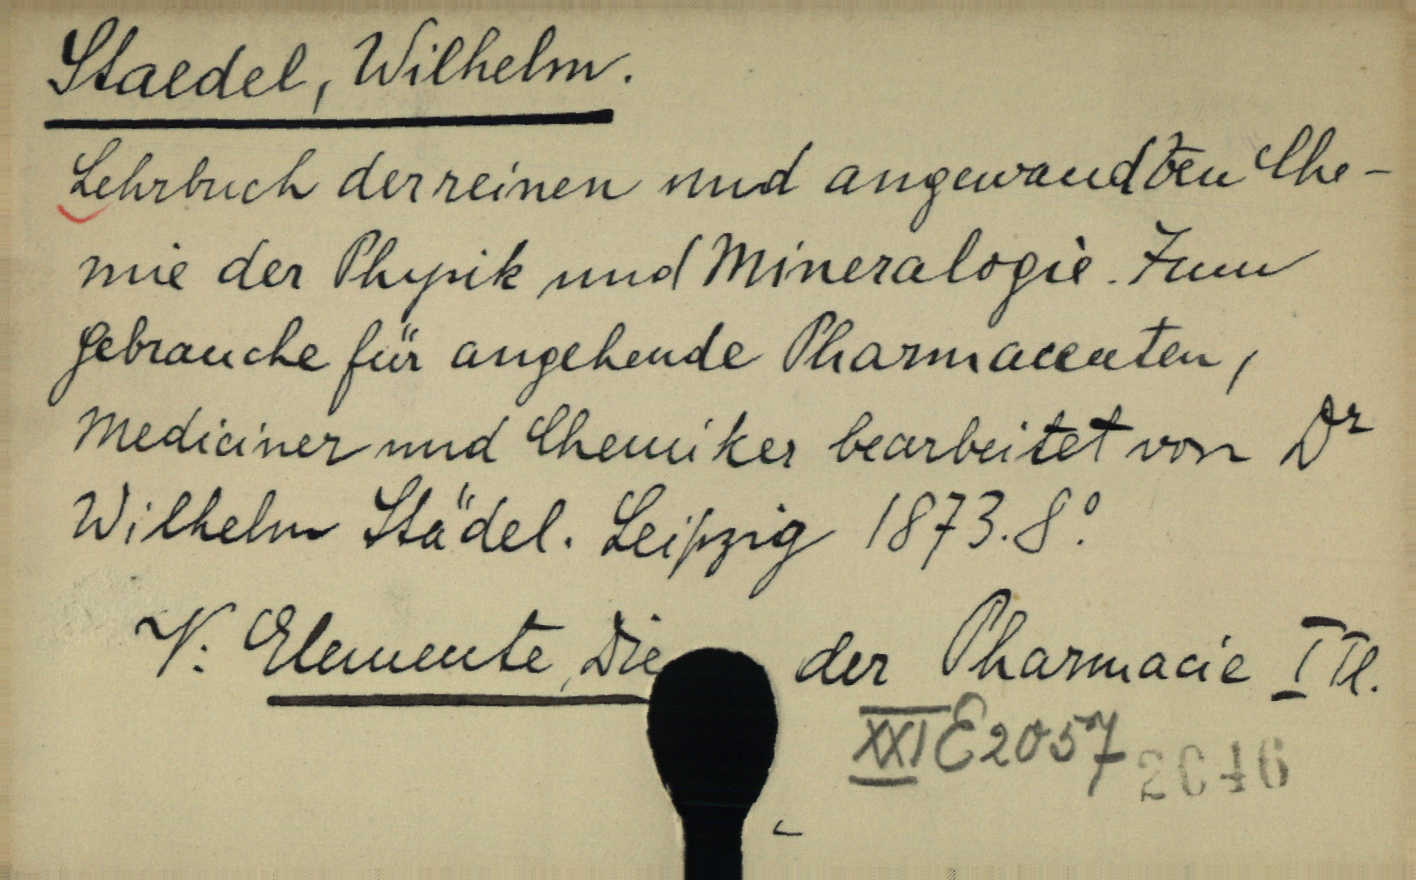 Staedel, Wilhelm.
Lehrbuch der reinen und angewandten Che-
mie der Physik und Mineralogie. Zum
Gebrauche für angehende Pharmaceuten,
Mediciner und Chemiker bearbeitet von Dr
Wilhelm Städel. Leipzig 1873. 8°.
V: Elemente, Die der Pharmacie I Tl.
XXI E 2057
2046